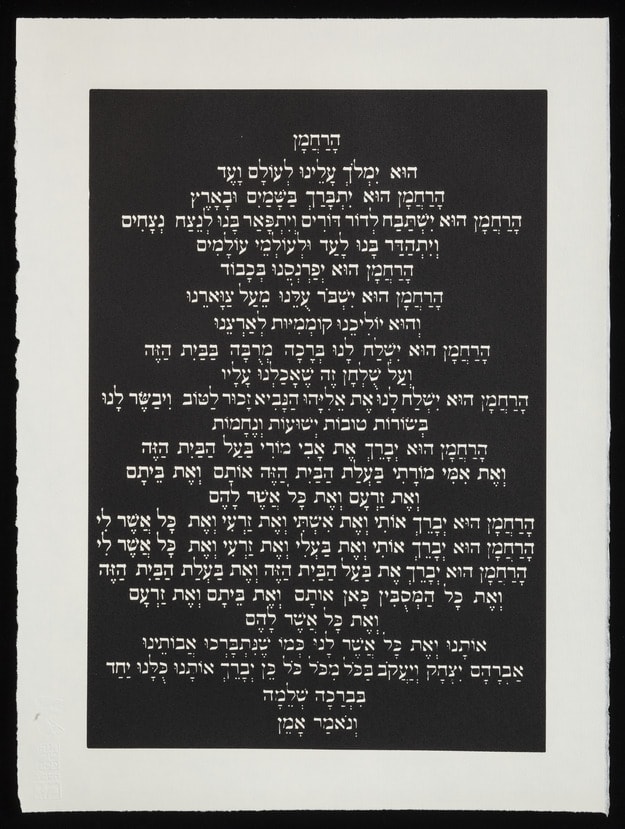 הָרַחֲמָן
הוּא יִמְלֹךְ עָלֵינוּ לְעוֹלָם וָעֶד
הָרַחֲמָן הוּא יִתְבָּרַךְ בַּשָּׁמַיִם וּבָאָרֶץ
הָרַחֲמָן הוּא יִשְׁתַּבַּח לְדוֹר דּוֹרִים וְיִתְפָּאַר בָּנוּ לְנֵצַח נְצָחִים
וְיִתְהַדַּר בָּנוּ לָעַד וּלְעוֹלְמֵי עוֹלָמִים
הָרַחֲמָן הוּא יְפַרְנְסֵנוּ בְּכָבוֹד
הָרַחֲמָן הוּא יִשְׁבֹּר עֻלֵּנוּ מֵעַל צַוָּארֵנוּ
וְהוּא יוֹלִיכֵנוּ קוֹמְמִיּוּת לְאַרְצֵנוּ
הָרַחֲמָן הוּא יִשְׁלַח לָנוּ בְּרָכָה מְרֻבָּה בַּבַּיִת הַזֶּה
וְעַל שֻׁלְחָן זֶה שֶׁאָכַלְנוּ עָלָיו
הָרַחֲמָן הוּא יִשְׁלַח לָנוּ אֶת אֵלִיָּהוּ הַנָּבִיא זָכוּר לַטּוֹב וִיבַשֶּׂר לָנוּ
בְּשׂוֹרוֹת טוֹבוֹת יְשׁוּעוֹת וְנֶחָמוֹת
הָרַחֲמָן הוּא יְבָרֵךְ אֶת אָבִי מוֹרִי בַּעַל הַבַּיִת הַזֶּה
וְאֶת אִמִּי מוֹרָתִי בַּעֲלַת הַבַּיִת הַזֶּה אוֹתָם וְאֶת בֵּיתָם
וְאֶת זַרְעָם וְאֶת כָּל אֲשֶׁר לָהֶם
הָרַחֲמָן הוּא יְבָרֵךְ אוֹתִי וְאֶת אִשְׁתִּי וְאֶת זַרְעִי וְאֶת כָּל אֲשֶׁר לִי
הָרַחֲמָן הוּא יְבָרֵךְ אוֹתִי וְאֶת בַּעְלִי וְאֶת זַרְעִי וְאֶת כָּל אֲשֶׁר לִי
הָרַחֲמָן הוּא יְבָרֵךְ אֶת בַּעַל הַבַּיִת הַזֶּה וְאֶת בַּעֲלַת הַבַּיִת הַזֶּה
וְאֶת כָּל הַמְסֻבִּין כָּאן אוֹתָם וְאֶת בֵּיתָם וְאֶת זַרְעָם
וְאֶת כָּל אֲשֶׁר לָהֶם
אוֹתָנוּ וְאֶת כָּל אֲשֶׁר לָנוּ כְּמוֹ שֶׁנִּתְבָּרְכוּ אֲבוֹתֵינוּ
אַבְרָהָם יִצְחָק וְיַעֲקֹב בַּכֹּל מִכֹּל כֹּל כֵּן יְבָרֵךְ אוֹתָנוּ כֻּלָּנוּ יַחַד
בִּבְרָכָה שְׁלֵמָה
וְנֹאמַר אָמֵן